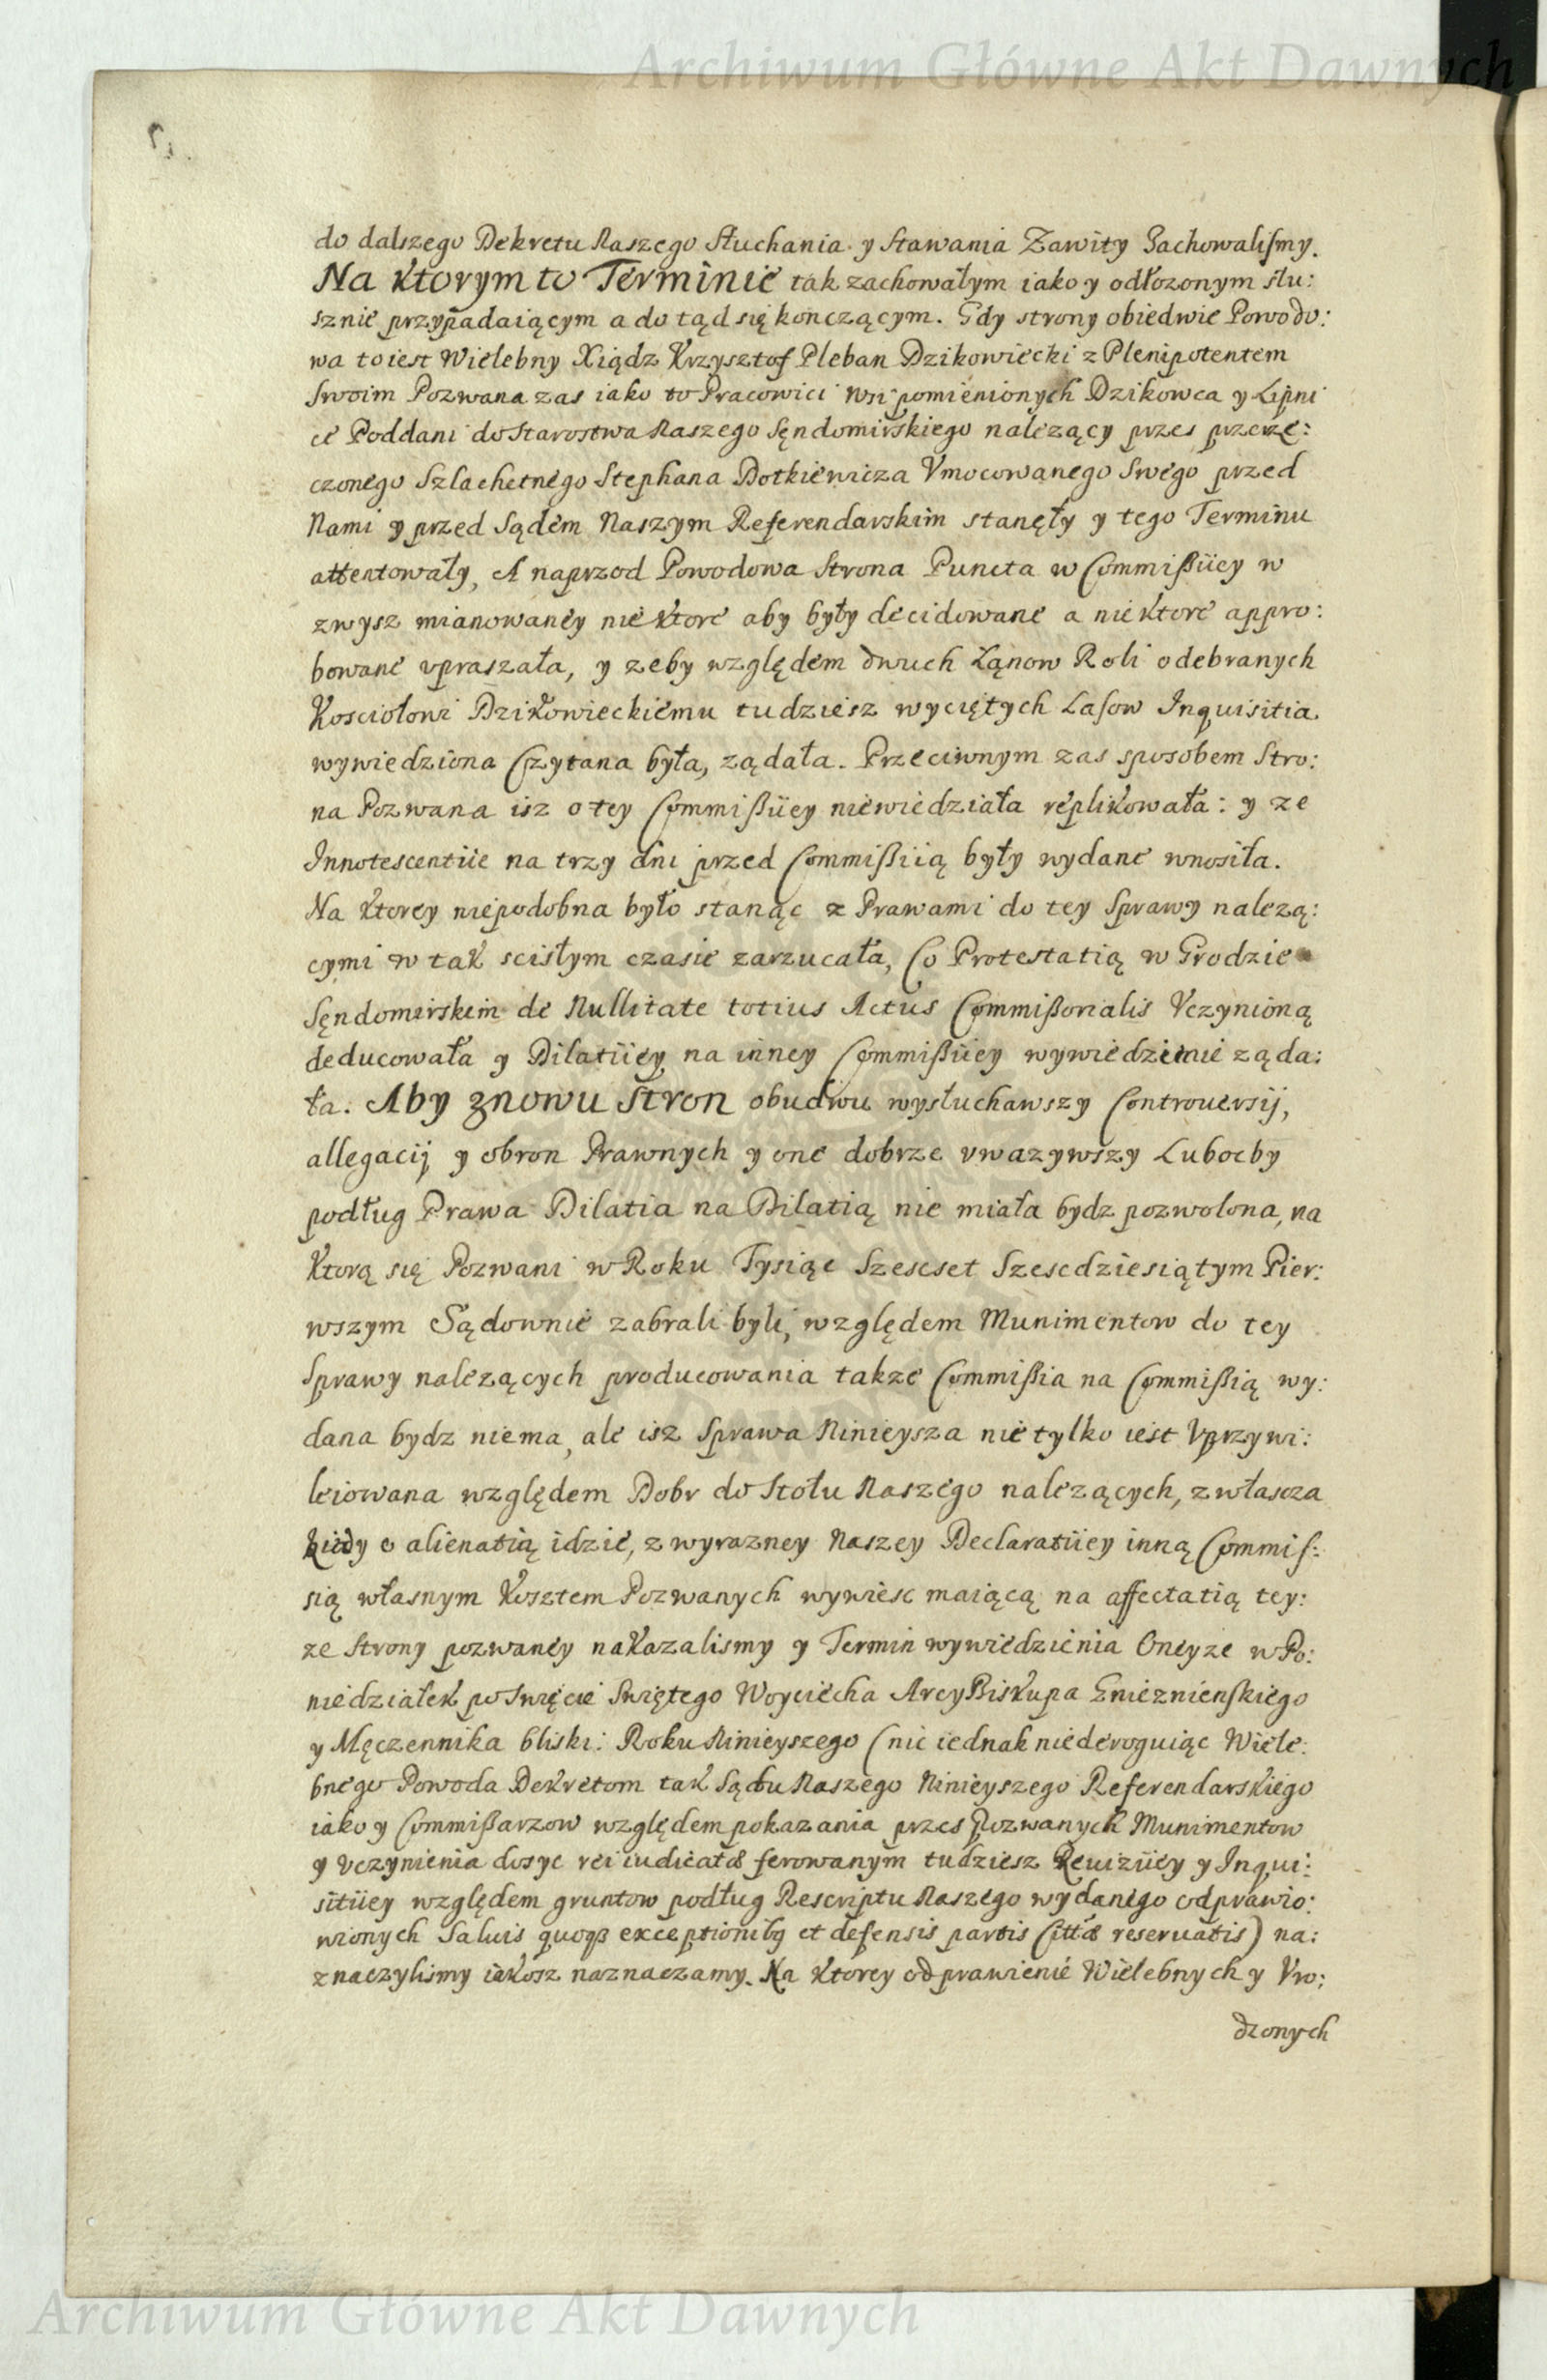 Archiwum Główne Akt Dawnych
do dalszego Dekretu Naszego słuchania y stawania Zawity Zachowaliſmy.
Na ktorym to Terminie tak zachowałym iako y odłozonym słu:
sznie przypadaiącym a do tąd się konczącym. Gdy strony obiedwie Powodo:
wa to iest Wielebny Xiądz Krzysztof Pleban Dzikowiecki z Plenipotentem
Swoim Pozwana zas iako to Pracowici wsi pomienionych Dzikowca y Lipni
ce Poddani do Starostwa Naszego Sęndomirskiego nalezący przes przerze:
czonego Szlachetnego Stephana Dotkiewicza Vmocowanego Swego przed
Nami y przed Sądem Naszym Referendarskim stanęły y tego Terminu
attentowały, A naprzod Powodowa Strona Puncta w Commißiiey w
zwysz mianowaney niektore aby były decidowane a niektore appro:
bowane vpraszała, y zeby względem dwuch Łąnow Roli odebranych
Kosciołowi Dzikowieckiemu tudziesz wyciętych Laſow Inquisitia
wywiedziona Czytana była, ządała. Przeciwnym zas sposobem Stro:
na Pozwana isz o tey Commißiiey niewiedziała replikowała: y ze
Innotescentiie na trzy dni przed Commißiią były wydane wnosiła.
Na ktorey niepodobna było stanąc z Prawami do tey Sprawy nalezą:
cymi w tak scisłym czasie zarzucała, Co Protestatią w Grodzie
Sęndomirskim de Nullitate totius Actus Commißorialis Vczynioną
deducowała y Dilatiiey na inney Commißiiey wywiedzienie ząda:
ła. Aby znowu stron obudwu wysłuchawszy Controuersij,
allegacij y obron Prawnych y one dobrze vwazywszy Luboćby
podług Prawa Dilatia na Dilatią nie miała bydz pozwolona, na
ktorą się Pozwani w Roku Tysiąc Szescset Szescdziesiątym Pier:
wszym Sądownie zabrali byli, względem Munimentow do tey
Sprawy nalezących producowania takze Commißia na Commißią wy:
dana bydz niema, ale isz Sprawa Ninieysza nie tylko iest Vprzywi:
leiowana względem Dobr do Stołu Naszego nalezących, zwłascza
kiedy o alienatią idzie, z wyrazney Naszey Declaratiiey inną Commiſ:
sią własnym Kosztem Pozwanych wywiesc maiącą na affectatią tey:
ze Strony pozwaney nakazalismy y Termin wywiedzienia Oneyze w Po:
niedziałek po Swięcie Swiętego Woyciecha ArcyBiskupa Gnieznienſkiego
y Męczennika bliski: Roku Ninieyszego (nic iednak niederoguiąc Wiele:
bnego Powoda Dekretom tak Sądu Naszego Ninieyszego Referendarskiego
iako y Commißarzow względem pokazania przes Pozwanych Munimentow
y vczynienia dosyc rei iudicatæ ferowanym tudziesz Reuiziiey y Inqui:
sitiiey względem gruntow podług Rescriptu Naszego wydanego odprawio:
wionych Saluis quoqꝫ exceptionibꝰ et defensis partis Cittæ reseruatis) na:
znaczylismy iakosz naznaczamy. Na ktorey odprawienie Wielebnych y Vro:
dzonych
Archiwum Główne Akt Dawnych